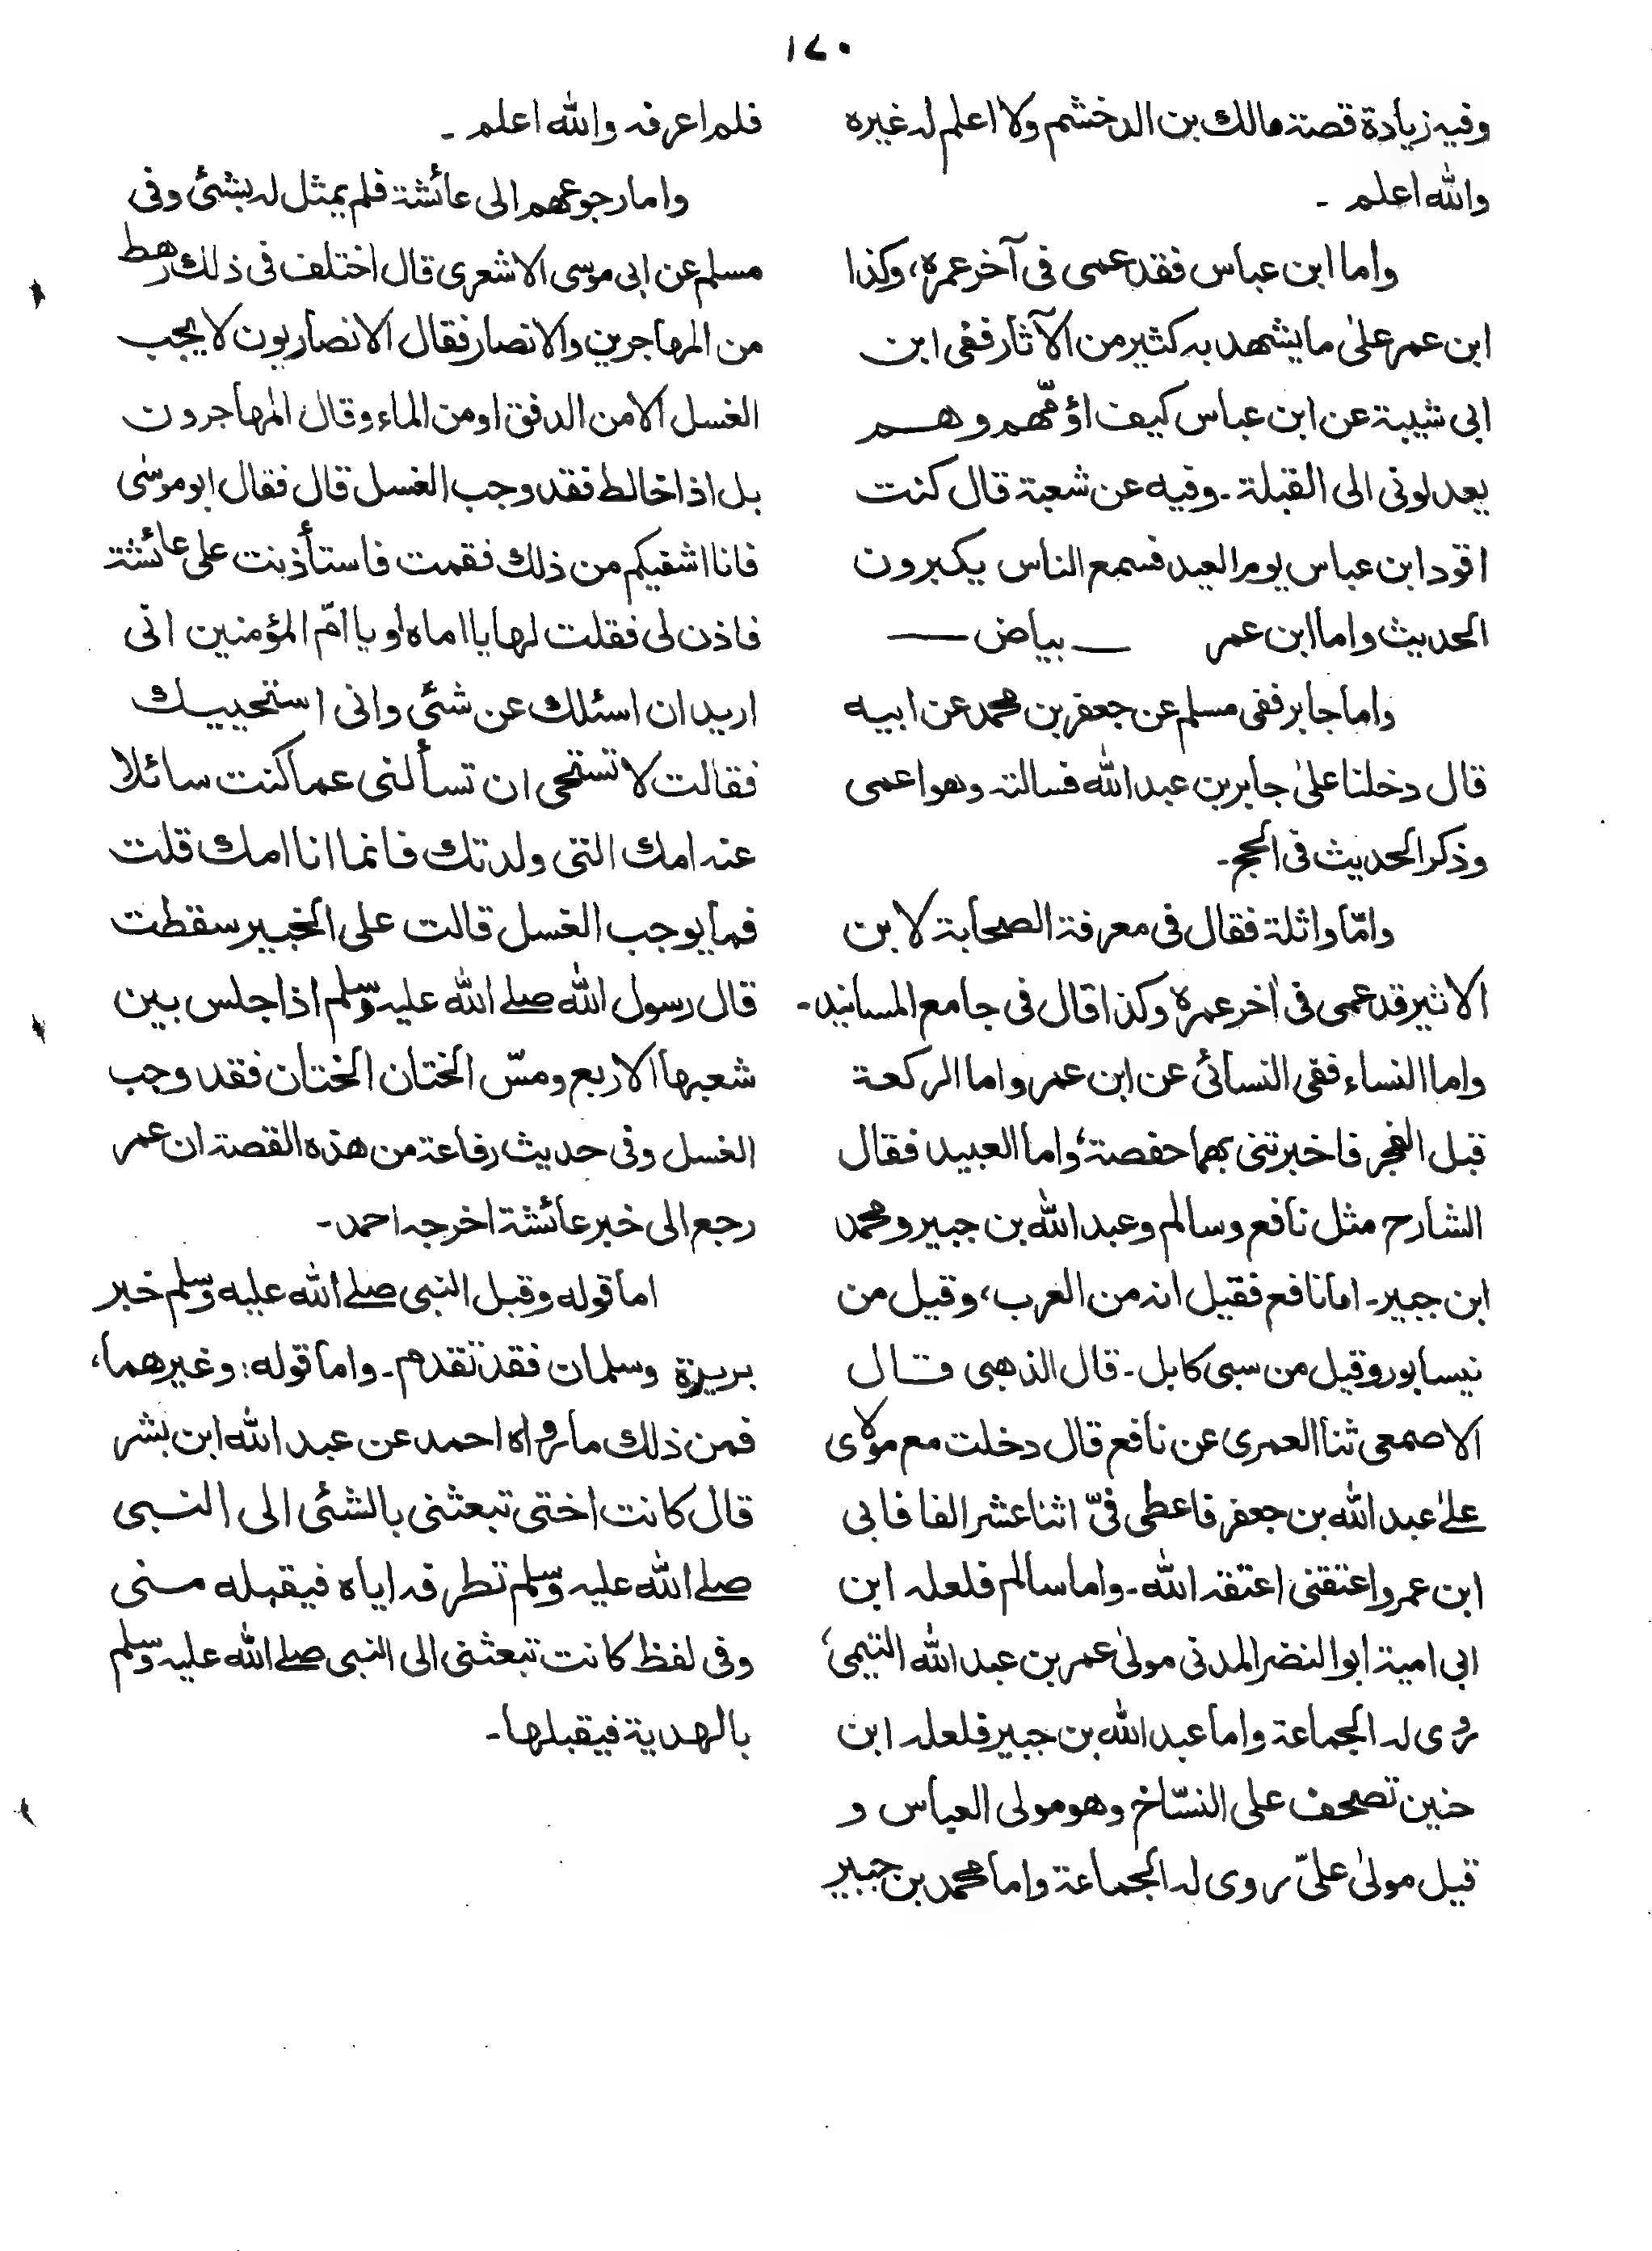 ١٧٠
وفيه زيادة قصة مالك بن الدخشم ولا اعلم له غيره
والله اعلم ۔
واما ابن عباس فقد عمى فى آخر عمره، وكذا
ابن عمر علىٰ ما يشهد به كثير من الآثار ففى ابن
ابى شيبة عن ابن عباس كيف اؤمّهم وهم
يعدلونى الى القبلة ۔ وفيه عن شعبة قال كنت
اقود ابن عباس يوم العيد فسمع الناس يكبرون
الحديث واما ابن عمر — بياض —
واما جابر ففى مسلم عن جعفر بن محمد عن ابيه
قال دخلنا علىٰ جابر بن عبد الله فسالته وهو اعمى
وذكر الحديث فى الحج ۔
وامّا واثلة فقال فى معرفة الصحابة لابن
الاثير قد عمى فى اٰخر عمره وكذا قال فى جامع المسانيد ۔
واما النساء ففى النسائى عن ابن عمر واما الركعة
قبل الفجر فاخبرتنى بهما حفصة، واما العبيد فقال
الشارح مثل نافع وسالم وعبد الله بن جبير ومحمد
ابن جبير ۔ اما نافع فقيل انه من العرب، وقيل من
نيسابور وقيل من سبى كابل ۔ قال الذهبى قال
الاصمعى ثنا العمرى عن نافع قال دخلت مع مولاى
علىٰ عبد الله بن جعفر فاعطى فىّ اثنا عشر الفا فابى
ابن عمر واعتقنى اعتقه الله ۔ واما سالم فلعله ابن
ابى امية ابو النضر المدنى مولىٰ عمر بن عبد الله التيمى،
روى له الجماعة واما عبد الله بن جبير فلعله ابن
حنين تصحف على النسّاخ وهو مولى العباس و
قيل مولىٰ علىّ روى له الجماعة واما محمد بن جبير
فلم اعرفه والله اعلم ۔
واما رجوعهم الى عائشة فلم يمثل له بشئ وفى
مسلم عن ابى موسى الاشعرى قال اختلف فى ذلك رهط
من المهاجرين والانصار فقال الانصاريون لا يجب
الغسل الا من الدفق او من الماء وقال المهاجرون
بل اذا خالط فقد وجب الغسل قال فقال ابو موسٰى
فانا اشفيكم من ذلك فقمت فاستأذنت على عائشة
فاذن لى فقلت لها يا اماه او يا امّ المؤمنين انى
اريد ان اسئلك عن شئ وانى استحييك
فقالت لا تستحى ان تسألنى عما كنت سائلا
عنه امك التى ولدتك فانما انا امك قلت
فما يوجب الغسل قالت على الخبير سقطت
قال رسول الله صلے الله عليه وسلم اذا جلس بين
شعبها الاربع ومسّ الختان الختان فقد وجب
الغسل وفى حديث رفاعة من هذه القصة ان عمر
رجع الى خبر عائشة اخرجه احمد ۔
اما قوله وقبل النبى صلے الله عليه وسلم خبر
بريرة وسلمان فقد تقدم ۔ واما قوله: وغيرهما،
فمن ذلك ما رواه احمد عن عبد الله ابن بشر
قال كانت اختى تبعثنى بالشئى الى النبى
صلے الله عليه وسلم تطرفه اياه فيقبله منى
وفى لفظ كانت تبعثنى الى النبى صلے الله عليه وسلم
بالهدية فيقبلها ۔